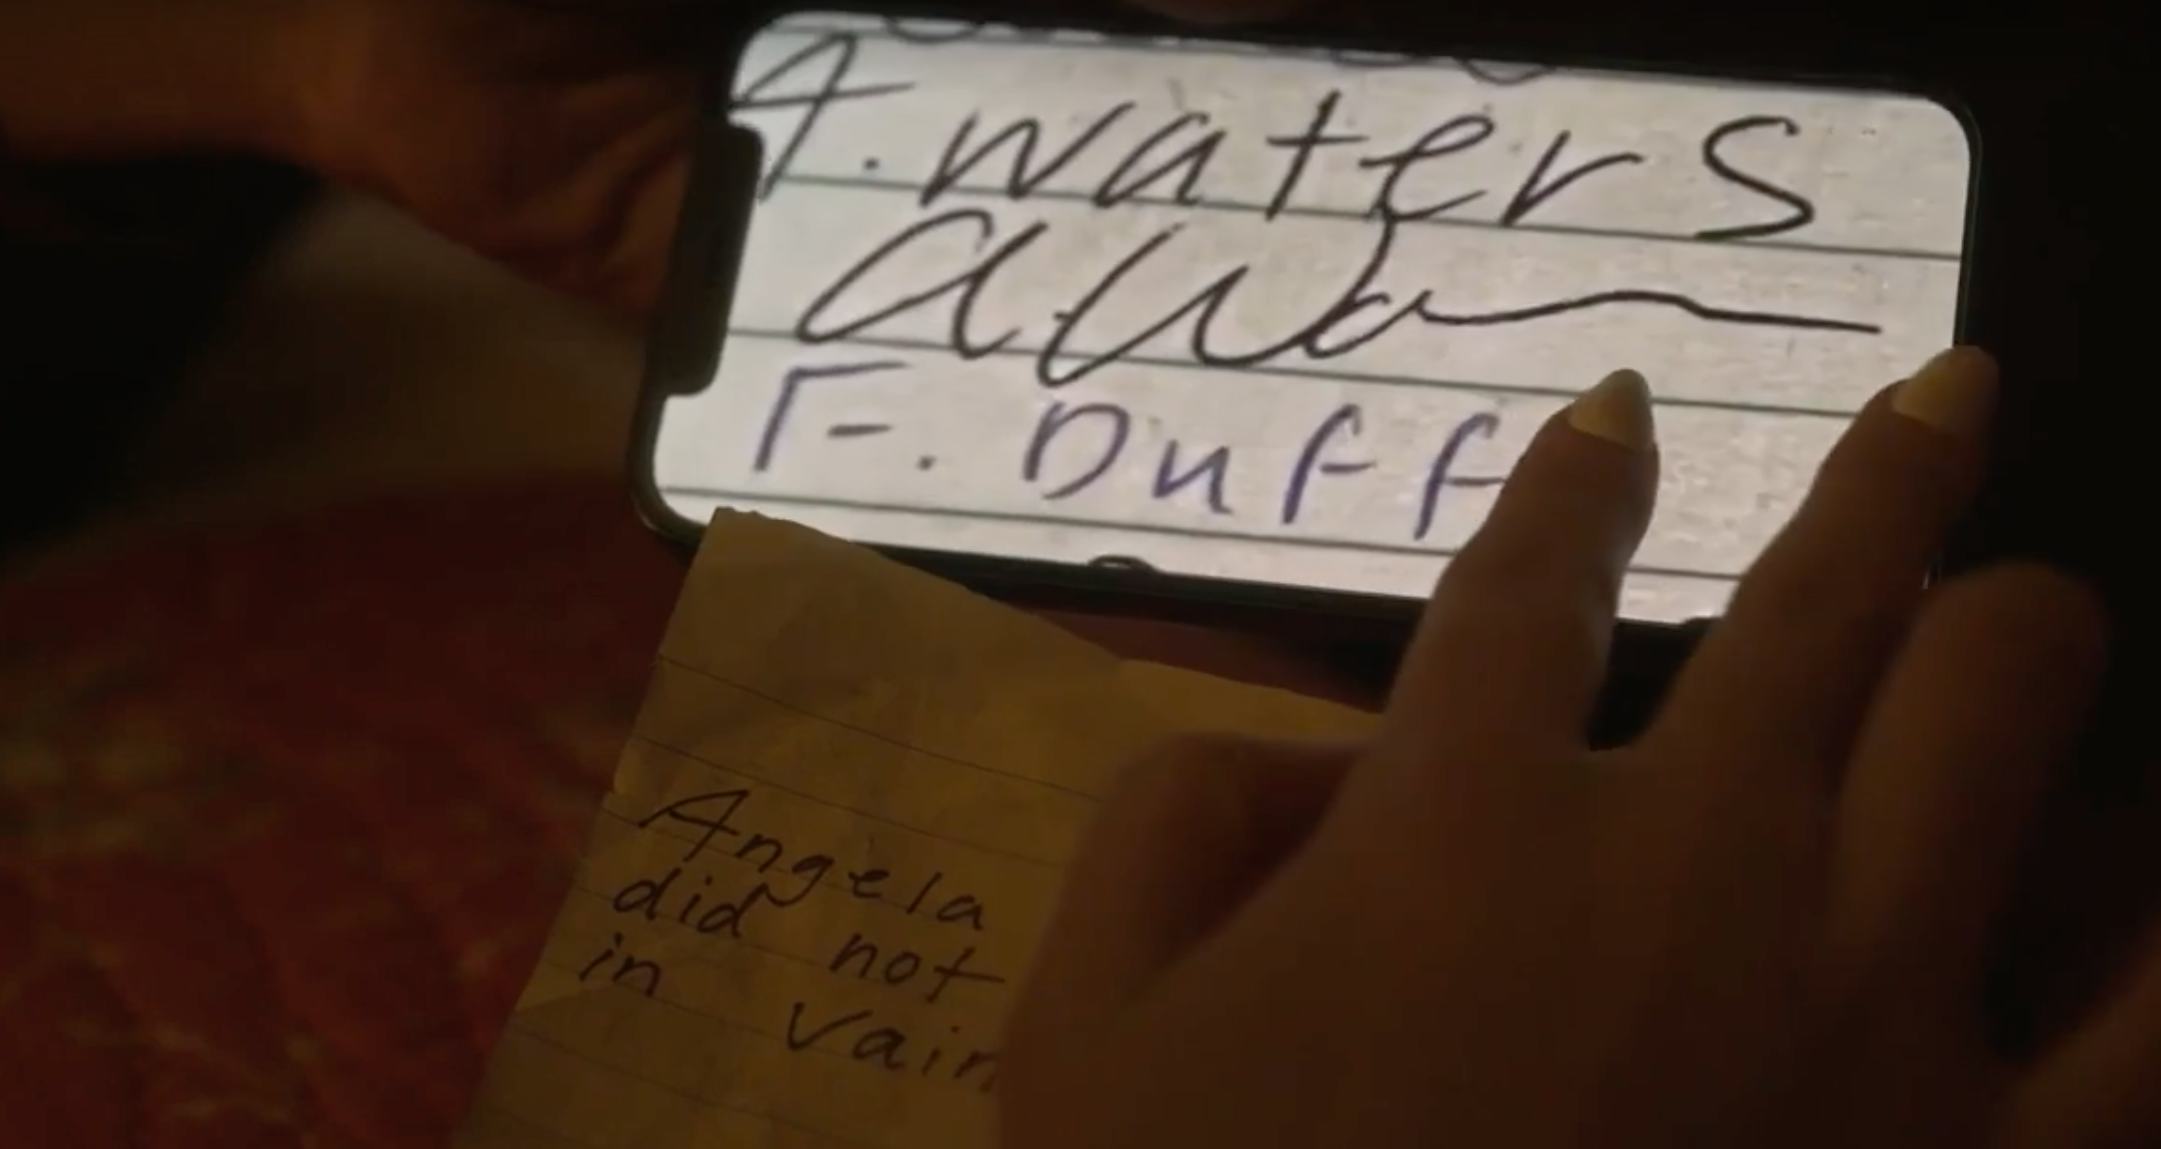 A. waters
F. Duff
Angela
did not
in vain